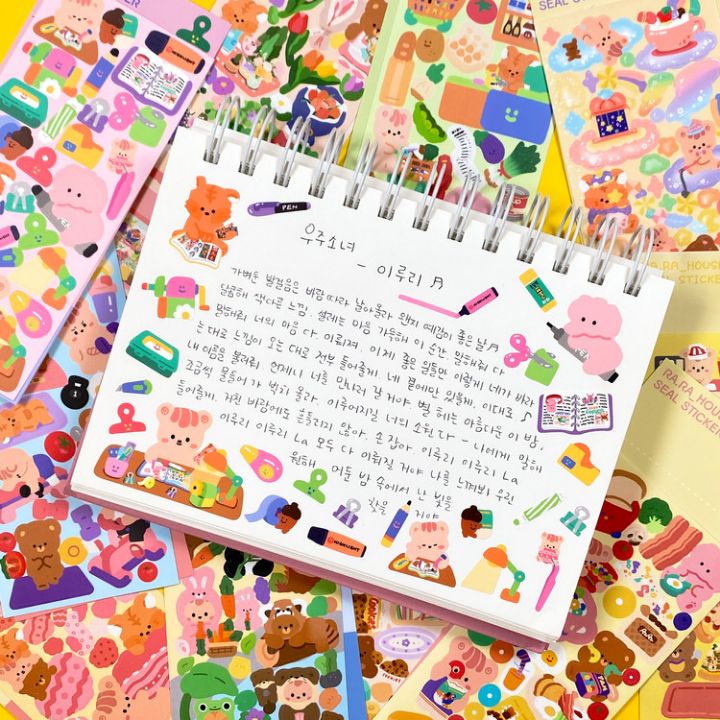 우주소녀
- 이루리 ♬
가벼운 발걸음은 바람 따라 날아올라 왠지 예감이 좋은 날♬
달콤해 색다른 느낌. 설레는 마음 가득해 이 순간 말해줘 다
말해줘 너의 마음 다. 이뤄져 이제 좋은 일들만 이렇게 네가 바라
는 대로 느낌이 오는 대로 전부 들어줄게. 네 곁에만 있을게. 이대로 ♪
내 이름을 불러줘. 언제나 너를 만나러 갈 거야 별 헤는 아름다운 이 밤,
조금씩 물들어가 벅차 올라. 이루어지길 너의 소원 다 - 나에게 말해
들어줄게. 거친 바람에도 흔들리지 않아. 손 잡아. 이루리 이루리 La
이루리 이루리 La 모두 다 이뤄질 거야 나를 느껴봐 우린
원해 어둔 밤 속에서 난 빛을
찾을 거야
PEN
HIGHLIGHT
HIGHLIGHT
SEAL STICKER
RA.RA_HOUSE
STICKER
RA.RA_HOUSE
SEAL STICKER